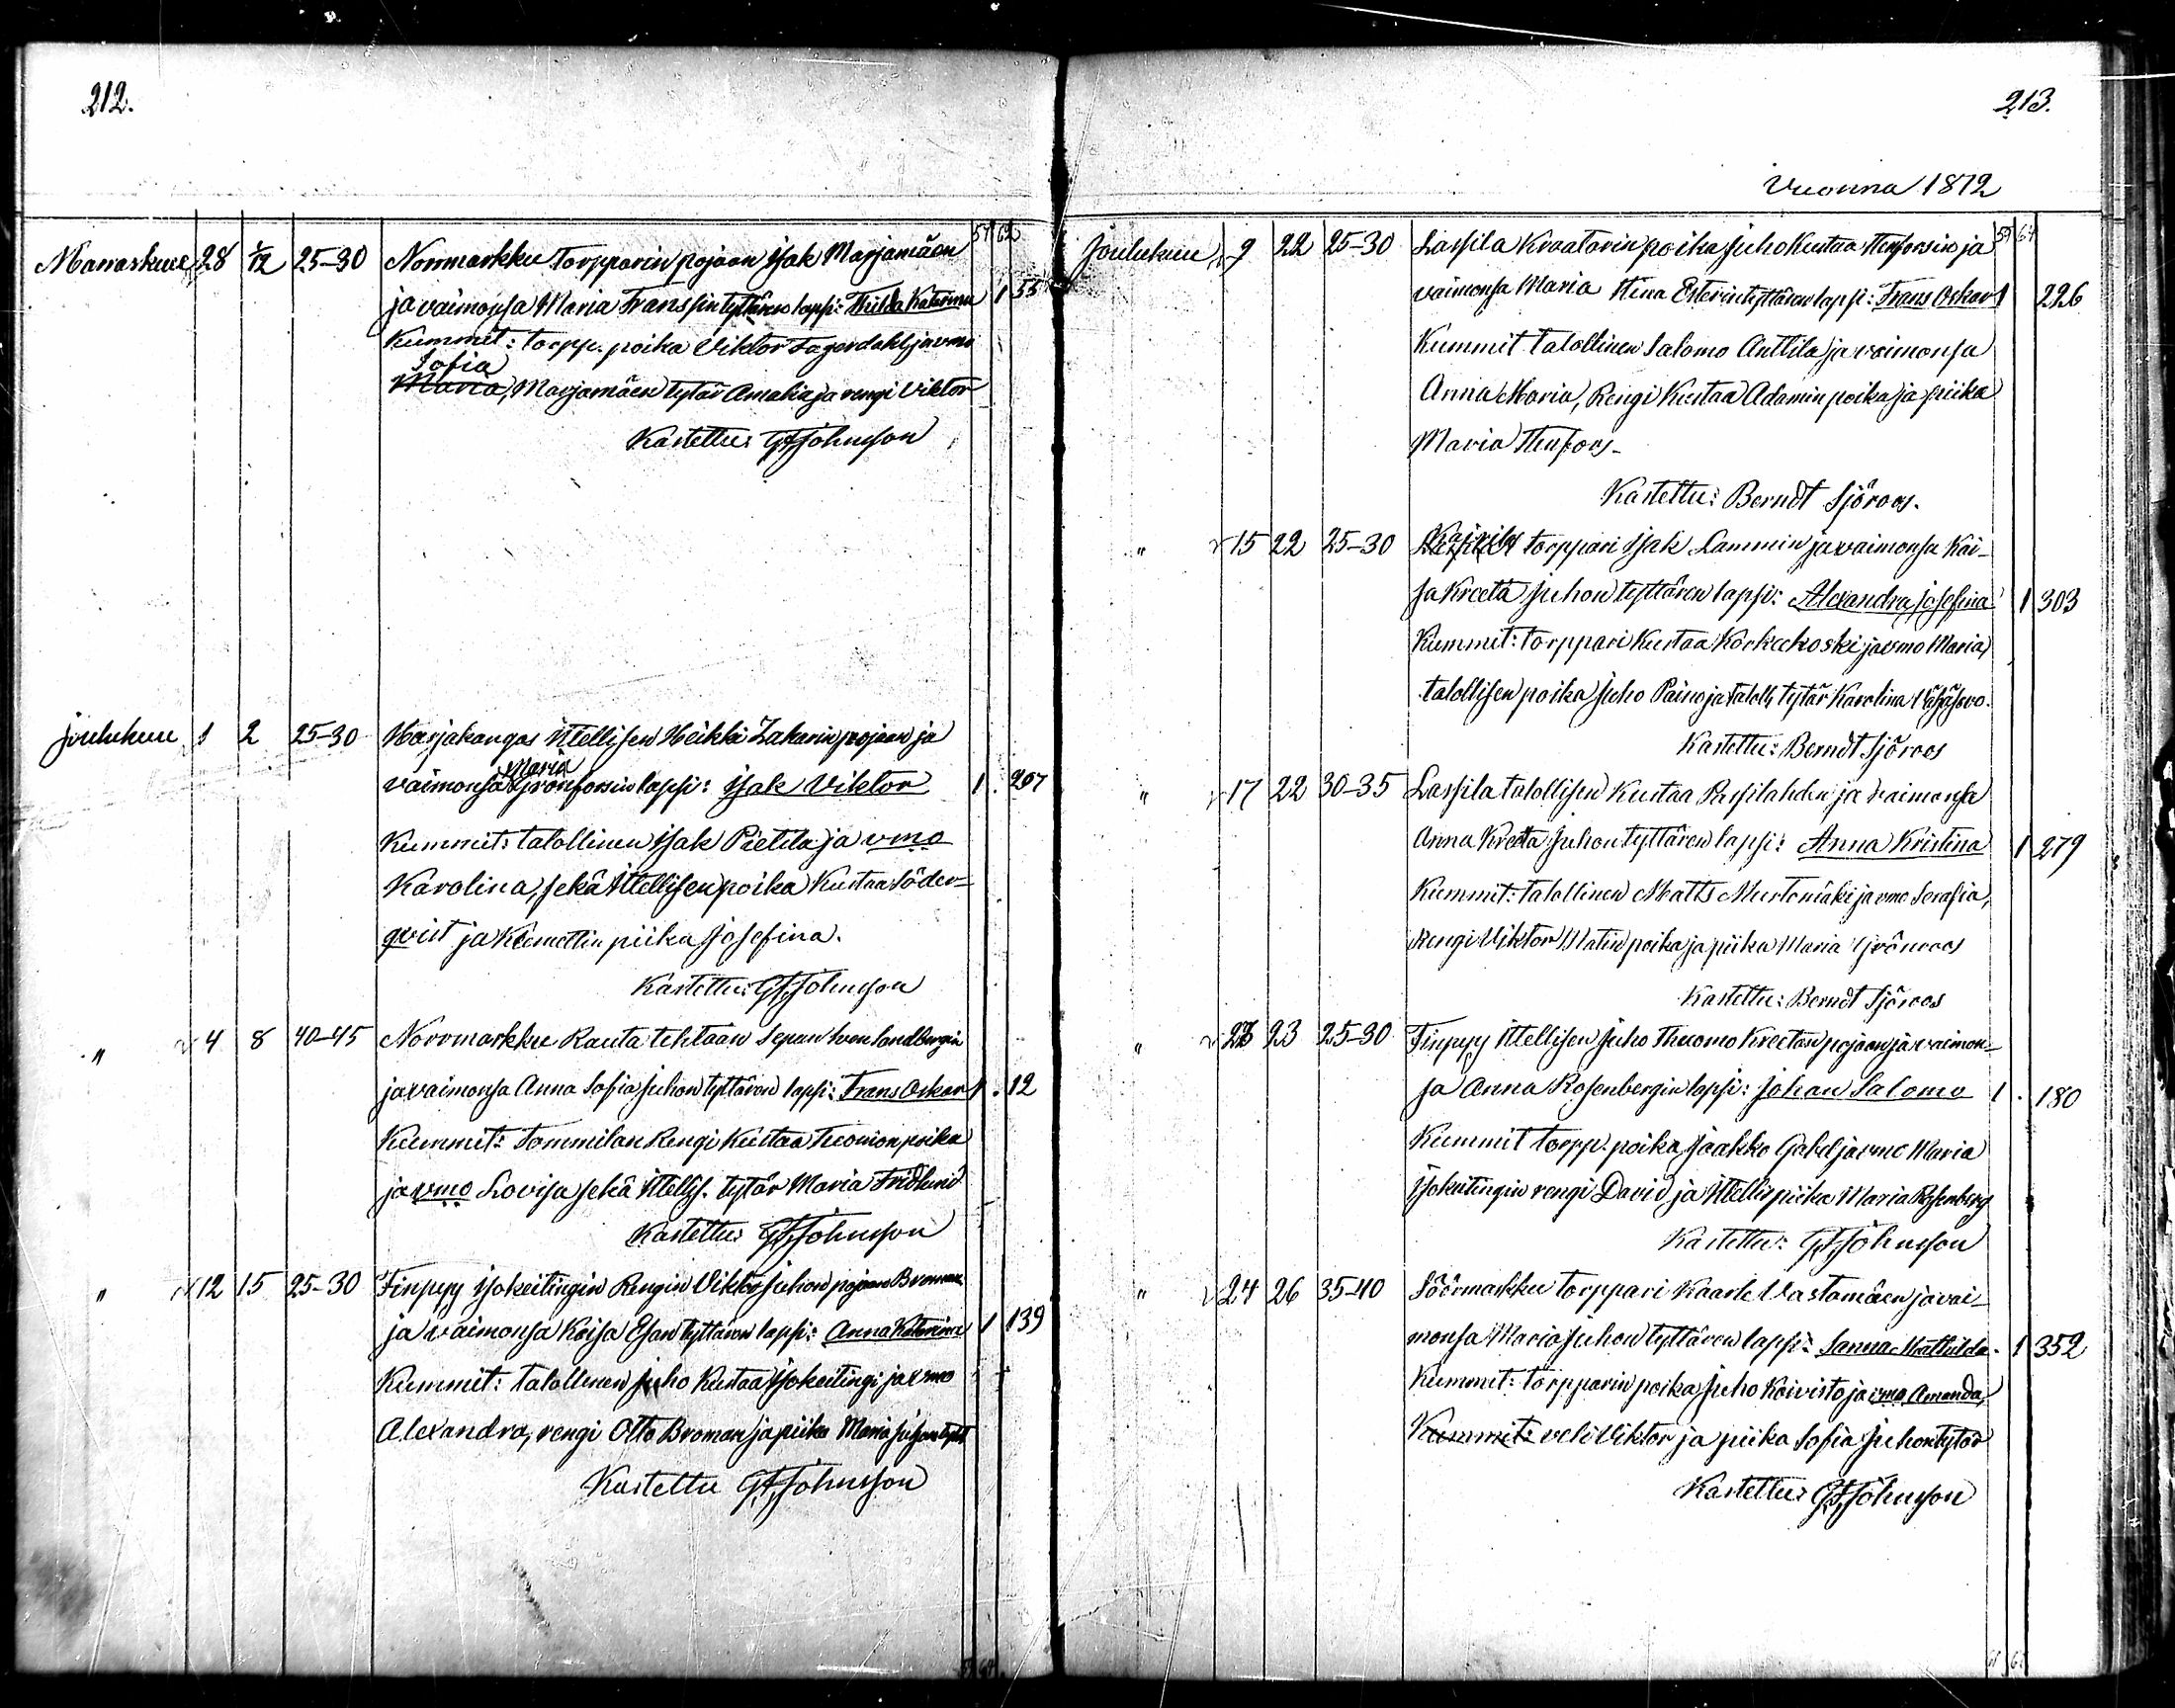 212.
Marraskuu 28 1/12 25-30 Norrmarkku Torpparin pojaan Isak Marjamäen
ja vaimonsa Maria Franssin tyttären lapsi: Hilda Katarina 1 55
Kummit: torpp. poika Viktor Lagerdahl ja vmo
Sofia
Maria, Marjamäen tytär Amalia ja rengi Viktor
Kastettu: G F Johnsson
Joulukuu 1 2 25-30 Harjakangas Itellisen Heikki Zakarin pojaan ja
Maria
vaimonsa Grönforsin lapsi: Isak Viktor 1 207
Kummit: talollinen Isak Pietila ja vmo
Karolina, sekä Itellisen poika Kustaa Söder-
qvist ja piika Josefina.
Kastettu: G F Johnsson
" 4 8 40-45 Norrmarkku Rauta tehtaan Sepan Landbergin
ja vaimonsa Anna Sofia Juhon tyttären lapsi: Frans Oskar 1 12
Kummit: Tommilan Rengi Kustaa Tuomon poika
ja vmo Lovisa sekä Itellis. tytär Maria Fridlund
Kastettu: G F Johnsson
" 12 15 25-30 Finpyy Isokeitingin Rengin Viktor Juhon pojaan Broman
ja vaimonsa Kaisa Esan tyttären lapsi: Anna Katarina 1 139
Kummit: talollinen Juho Kustaa Isokeitingi ja vmo
Alexandra, rengi Otto Broman ja piika Maria Juhon tytt
Kastettu G F Johnsson
213.
Vuonna 1872
Joulukuu 9 22 25-30 Lassila Kraatarin poika Juho Kustaa Stenforsin ja
vaimonsa Maria Stina Esterin tyttären lapsi: Frans Oskar 1 226
Kummit talollinen Salomo Anttila ja vaimonsa
Anna Maria, Rengi Kustaa Adamin poika ja piika
Maria Stenfors-
Kastettu: Berndt Sjöroos.
" 15 22 25-30 torppari Isak Lammin ja vaimonsa Kai-
sa Kreeta Juhon tyttären lapsi: Alexandra Josefina 1 303
Kummit: torppari Kustaa Korkeekoski ja vmo Maria,
talollisen poika Juho Paino ja taloll. tytär Karolina
Kastettu: Berndt Sjöroos
" 17 22 30-35 Lassila talollisen Kustaa Passilahden ja vaimonsa
Anna Kreeta Juhon tyttären lapsi: Anna Kristina 1 279
Kummit: talollinen Matts Murtomäki ja vmo Serafia,
Rengi Viktor Matin poika ja piika Maria Grönroos
Kastettu: Berndt Sjöroos
" 23 25-30 Finpyy Itellisen Juho Thuomo Kreetan pojaan ja vaimon-
sa Anna Rosenbergin lapsi: Johan Salomo 1 180
Kummit torpp. poika Jaakko ja vmo Maria
Isokeitingin rengi David ja Itellis piika Maria Rosenberg
Kastettu: G F Johnsson
" 24 26 35-40 Söörmarkku torppari Kaarle Vastamäen ja vai-
monsa Maria Juhon tyttären lapsi: Sanna Mathilda 1 352
Kummit: torpparin poika Juho Koivisto ja vmo Amanda,
Kummit: veli Viktor ja piika Sofia Juhon tytär
Kastettu: G F Johnsson